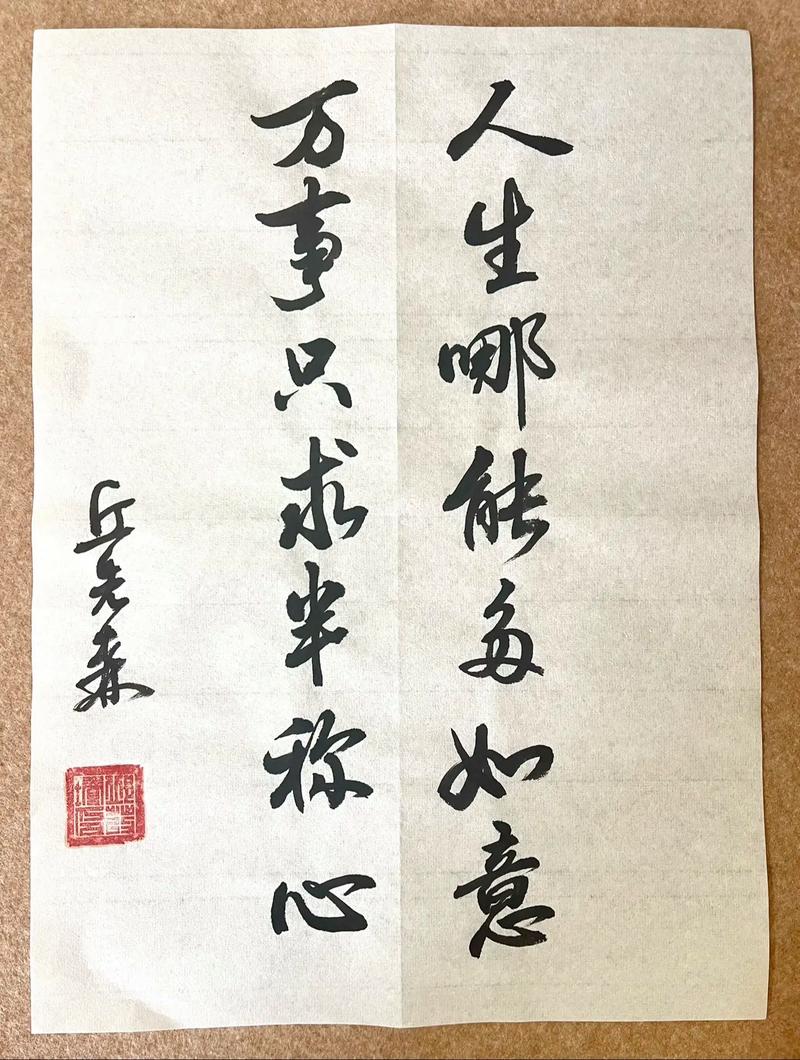 人生哪能多如意
万事只求半称心
丘先森